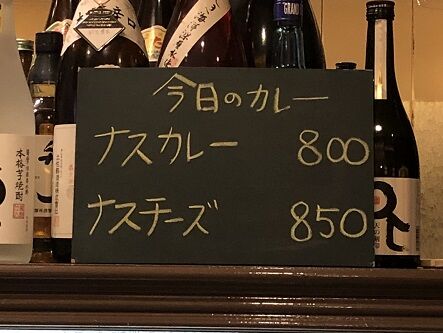 今日のカレー
ナスカレー 800
ナスチーズ 850
本格芋焼酎
GRAND